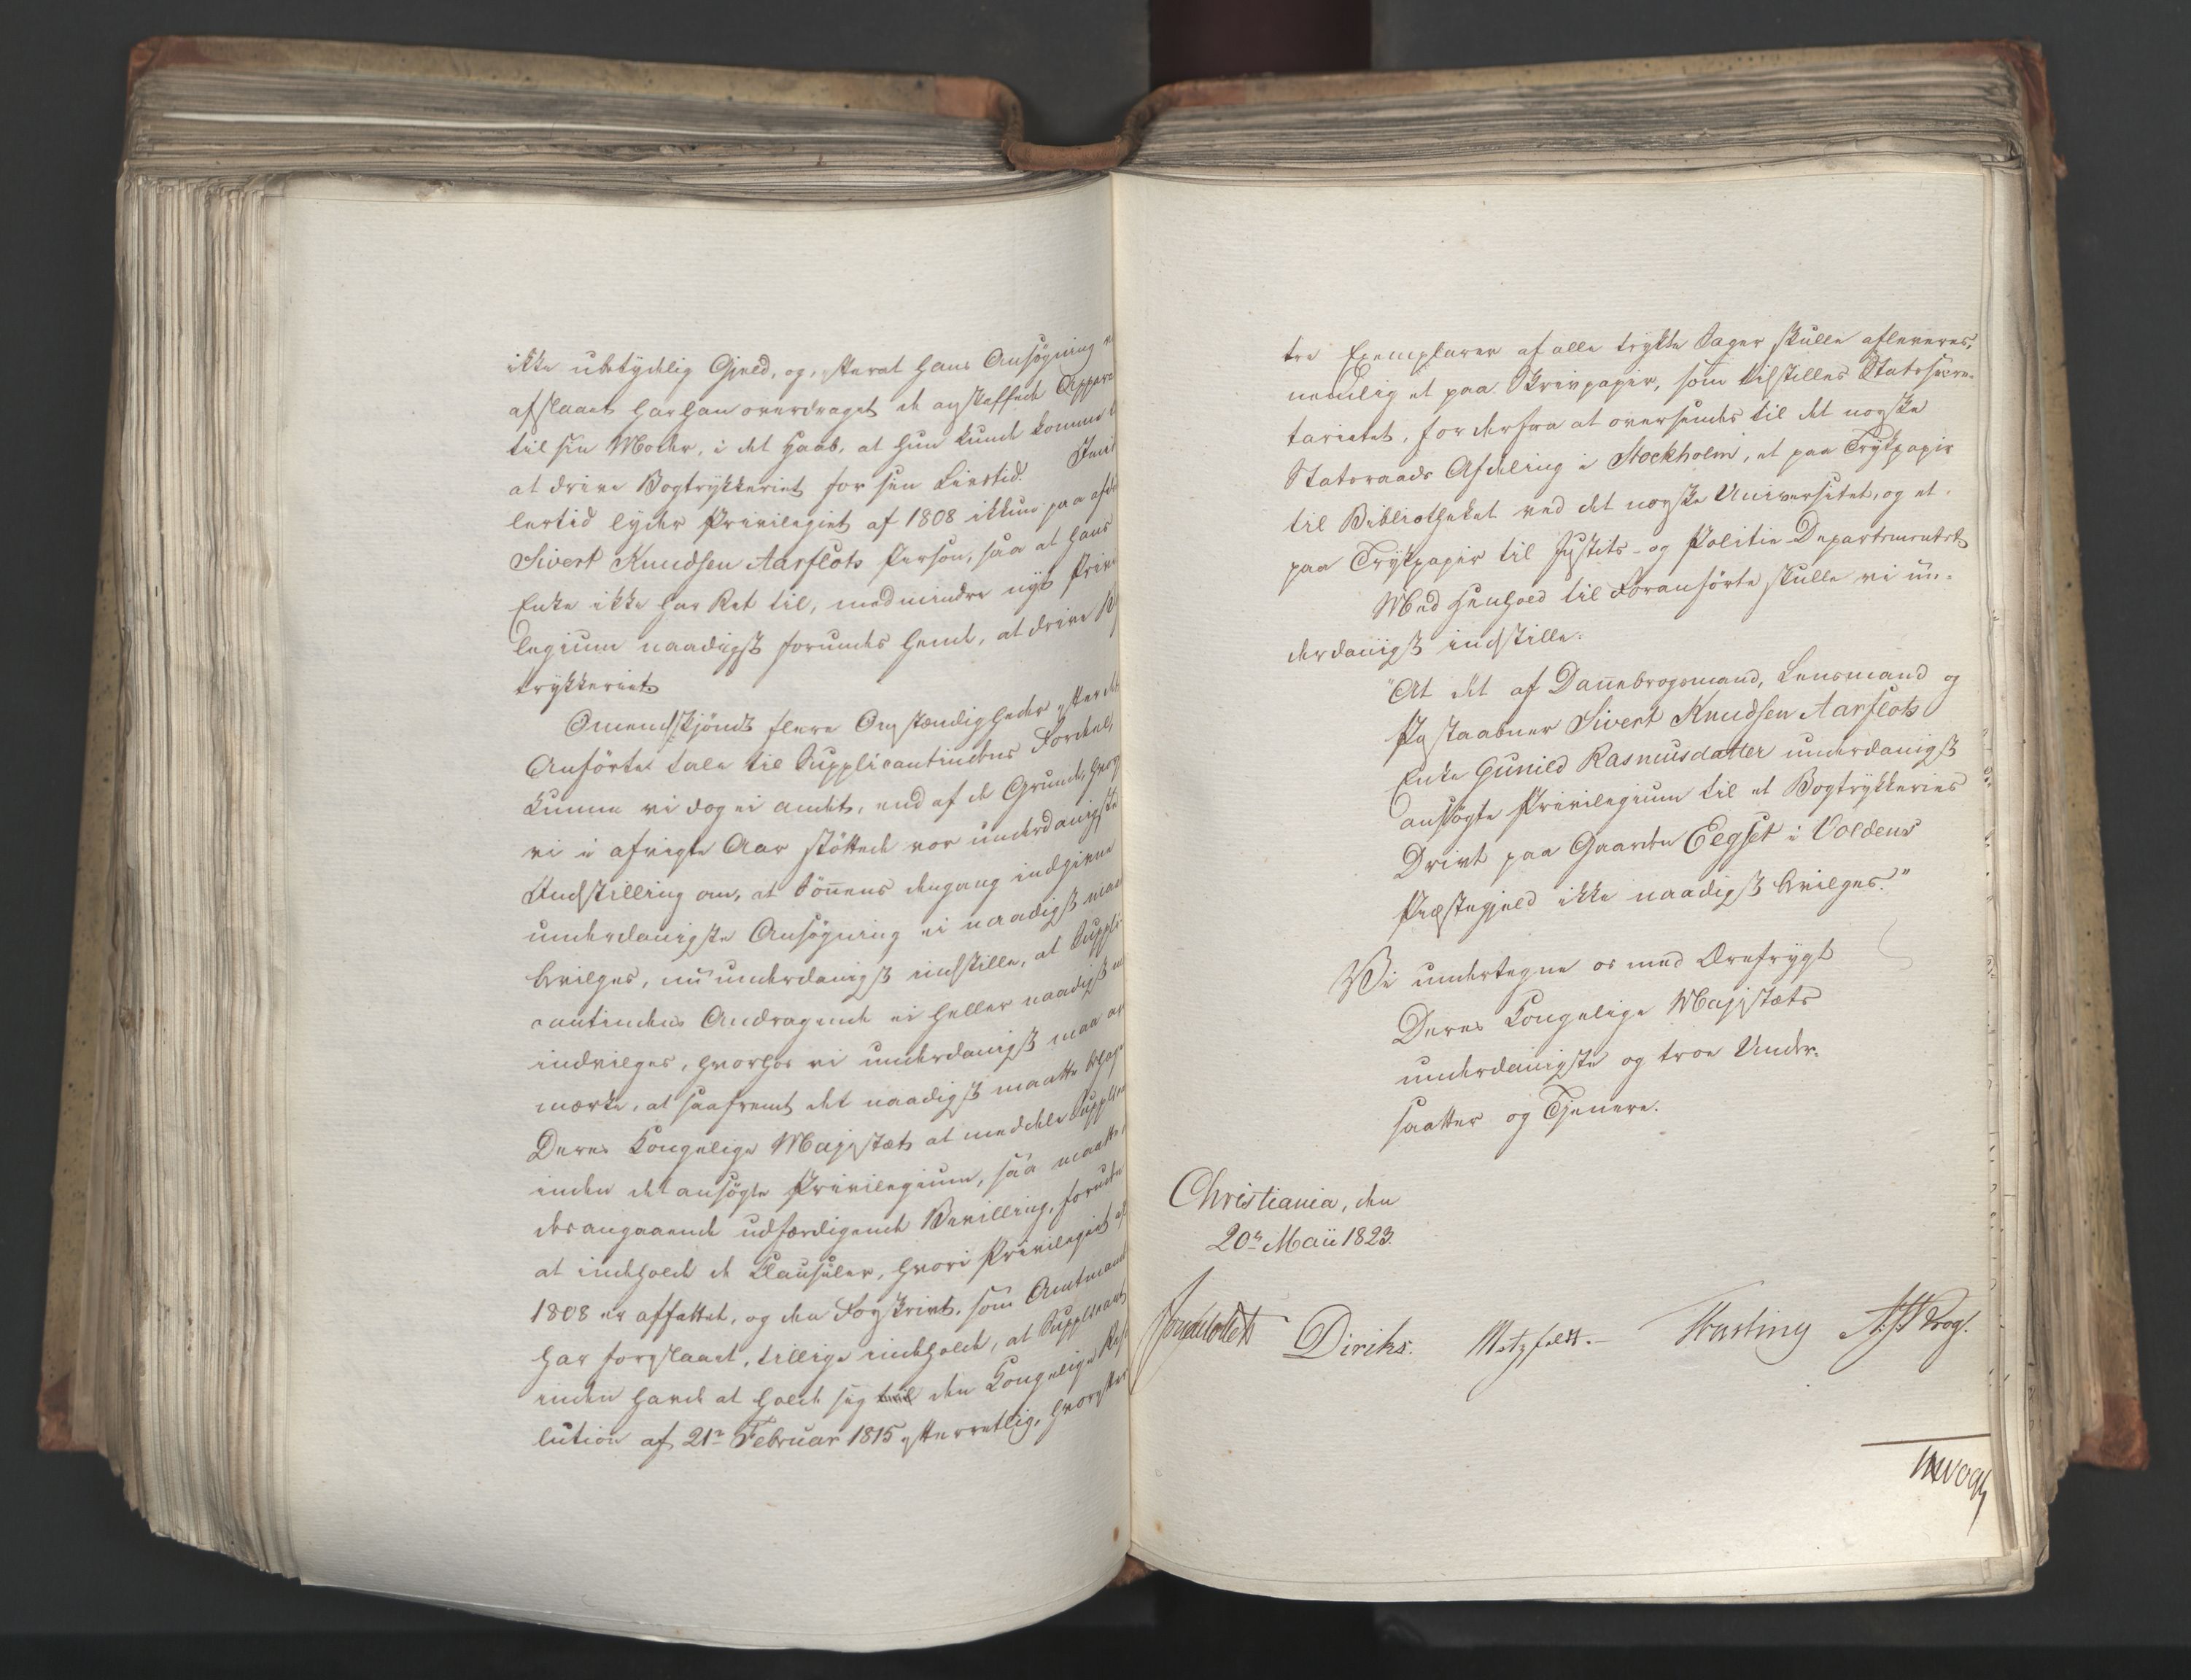 ikke ubetydelig Gjeld, og, efterat hans Ansøgning
afslaaet har han overdraget de anskaffede Appara
til sin Moder, i det Haab, at hun kunde komme t
at drive Bogtrykkeriet for sin Livstid. Imid
lertid lyder Privilegiet af 1808 ikkun paa afd
Sivert Knudsen Aarflots Person, saa at hans
Enke ikke har Ret til, medmindre nyt Privi
legium naadigst forundes hende, at drive
trykkeriet
Omendskjöndt flere Omstændigheder efter det
Anförte tale til Supplicantindens Fordeel,
kunne vi dog ei andet, end af de Grunde, hvor
vi i afvigte Aar støttede vor underdanigste
Indstilling om, at Sön̄ens dengang indgivne
underdanigste Ansøgning ei naadigst maa
bevilges, nu underdanigst indstille, at Suppli
cantindens Andragende ei heller naadigst
indvilges, hvorhos vi underdanigst maa an
mærke, at saafremt det naadigst maatte behage
Deres Kongelige Majestæt at meddele Supplican
inden det ansøgte Privilegium, saa maatte
desangaaende udfærdigende Bevilling, foruden
at indeholde de Clausuler, hvori Privilegiet af
1808 er affattet, og den Forskrivt, som Amtmand
har foreslaaet, tillige indeholde, at Supplicant
inden havde at holde sig den Kongelige Reso
lution af 21n Februar 1815 efterrettelig, hvorefter
tre Exemplarer af alle trykte Sager skulle afleveres,
nemlig et paa Skrivpapir, som tilstilles Statssecre-
tariatet, for derfra at oversendes til det norske
Statsraads Afdeling i Stockholm, et paa Trykpapir
til Bibliotheket ved det norske Universitet, og et
paa Trykpapir til Justits- og Politie-Departementet
Med Henhold til Foranførte skulle vi un-
derdanigst indstille:
"At det af Dan̄ebrogsmand, Lensmand og
Postaabner Sivert Knudsen Aarflots
Enke Gunild Rasmusdatter underdanigst
ansøgte Privilegium til et Bogtrykkeries
Drivt paa Gaarden Eegset i Voldens
Præstegjeld ikke naadigst bevilges."
Vi undertegne os med Ærefrygt
Deres Kongelige Majestæts
underdanigste og troe Under-
saatter og Tjenere.
Christiania, den
20n Maii 1823.
Diriks. Motzfeldt. Fasting